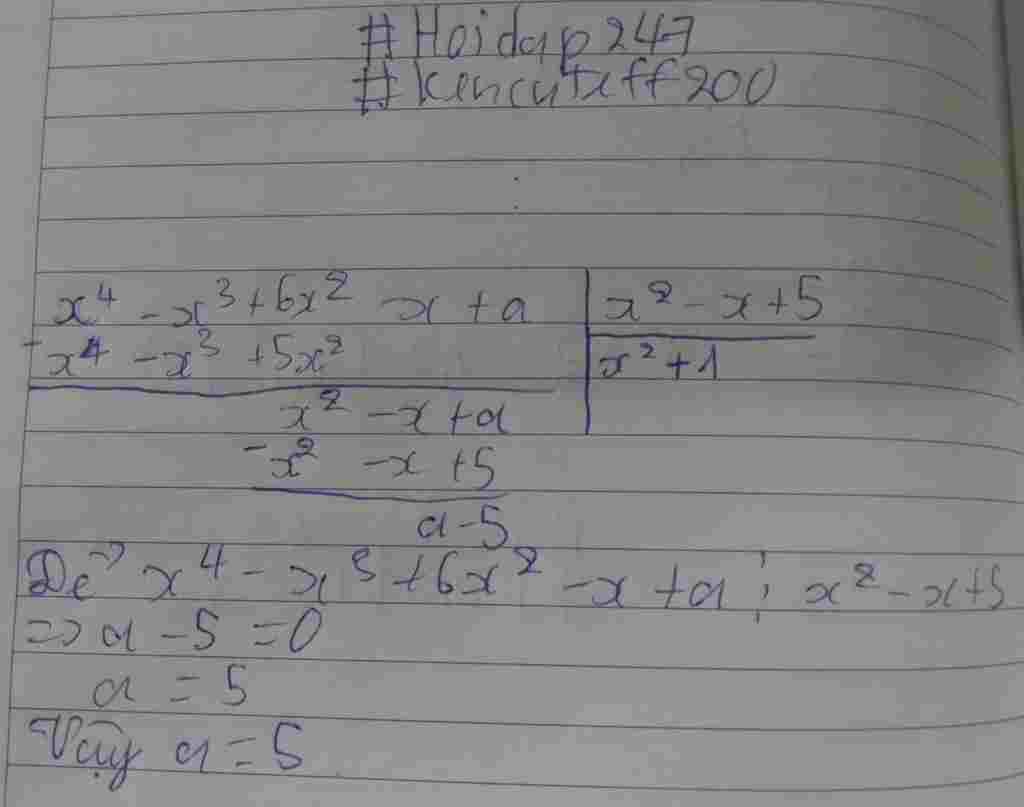 #Hoidap247
#Kencuteff200
x⁴ - x³ + 6x² - x + a | x² - x + 5
- x⁴ - x³ + 5x² | x² + 1
x² - x + a
- x² - x + 5
a - 5
Để x⁴ - x³ + 6x² - x + a ⋮ x² - x + 5
=> a - 5 = 0
a = 5
Vậy a = 5